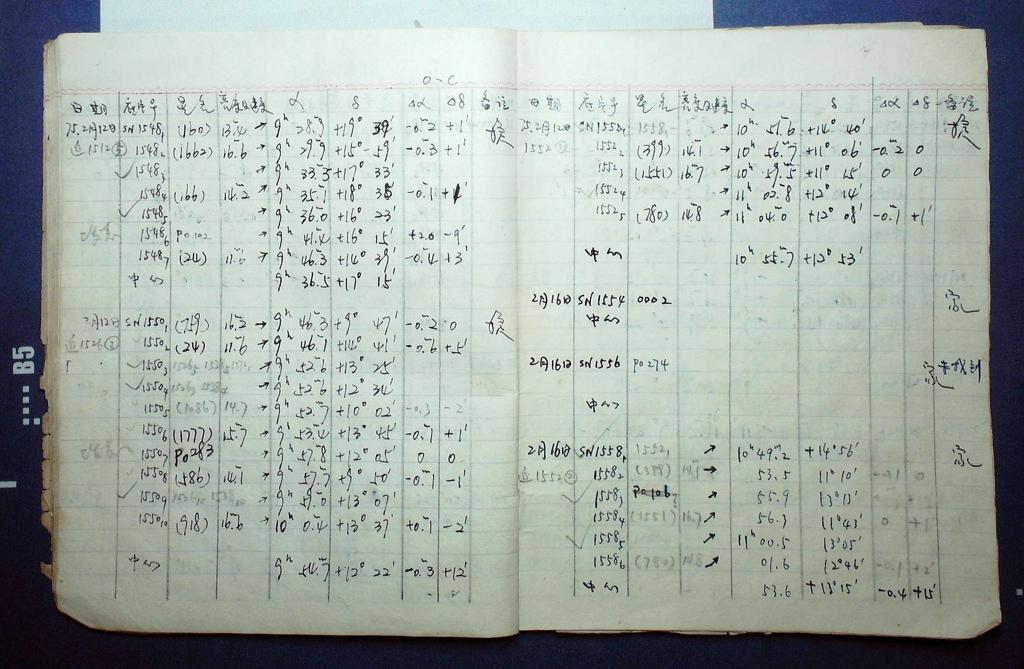 O-C
日期 底片号 星名 亮度及速度 α δ Δα Δδ 备注
75.2月12日 SN1548₁ (160) 13.4 → 9ʰ 28.9ᵐ +19° 39′ -0.2 +1′
追1512⑤ 1548₂ (1662) 16.6 → 9ʰ 29.9ᵐ +15° 59′ -0.3 +1′
1548₃ → 9ʰ 33.3ᵐ +17° 33′
1548₄ (166) 14.2 → 9ʰ 35.1ᵐ +18° 35′ -0.1 +1′
1548₅ → 9ʰ 36.0ᵐ +16° 23′
1548₆ PO102 9ʰ 41.4ᵐ +16° 15′ +2.0 -9′
1548₇ (24) 11.6 → 9ʰ 46.3ᵐ +14° 39′ -0.4 +3′
中心 9ʰ 36.5ᵐ +17° 15′
2月12日 SN1550₁ (759) 16.2 → 9ʰ 46.3ᵐ +9° 47′ -0.2 0
1550₂ (24) 11.6 → 9ʰ 46.1ᵐ +14° 41′ -0.6 +5′
1550₃ → 9ʰ 52.6ᵐ +13° 25′
1550₄ → 9ʰ 52.6ᵐ +12° 34′
1550₅ (1086) 14.7 → 9ʰ 52.7ᵐ +10° 02′ -0.3 -2′
1550₆ (1777) 15.7 → 9ʰ 53.4ᵐ +13° 45′ -0.1 +1′
1550₇ PO283 9ʰ 57.8ᵐ +12° 05′ 0 0
1550₈ (586) 14.1 → 9ʰ 57.7ᵐ +9° 50′ -0.1 -1′
1550₉ → 9ʰ 59.0ᵐ +13° 07′
1550₁₀ (918) 16.6 → 10ʰ 0.4ᵐ +13° 37′ +0.1 -2′
中心 9ʰ 54.7ᵐ +12° 22′ -0.3 +12′
日期 底片号 星名 亮度及速度 α δ Δα Δδ 备注
75.2月12日 1558₁ → 10ʰ 51.6ᵐ +14° 40′
1552① 1552₂ (399) 14.1 → 10ʰ 56.7ᵐ +11° 06′ -0.2 0
1552₃ (1551) 16.7 → 10ʰ 59.5ᵐ +11° 15′ 0 0
1552₄ → 11ʰ 02.8ᵐ +12° 14′
1552₅ (780) 14.8 → 11ʰ 04.0ᵐ +12° 08′ -0.1 +1′
中心 10ʰ 55.7ᵐ +12° 53′
2月16日 SN1554 0002 家
中心
2月16日 SN1556 PO274 家 未找到
中心
2月16日 SN1558₁ 1552₁ ↗ 10ʰ 49.2ᵐ +14° 56′ 家
追1552② 1558₂ (399) 14.1 → 53.5 11° 10′ -0.1 0
1558₃ PO106? ↗ 55.9 13° 13′
1558₄ (1551) 16.7 ↗ 56.3 11° 43′ 0 +1′
1558₅ ↗ 11ʰ 00.5 13° 05′
1558₆ (780) 14.8 ↗ 01.6 12° 46′ -0.1 +2′
中心 53.6 +13° 15′ -0.4 +15′
B5